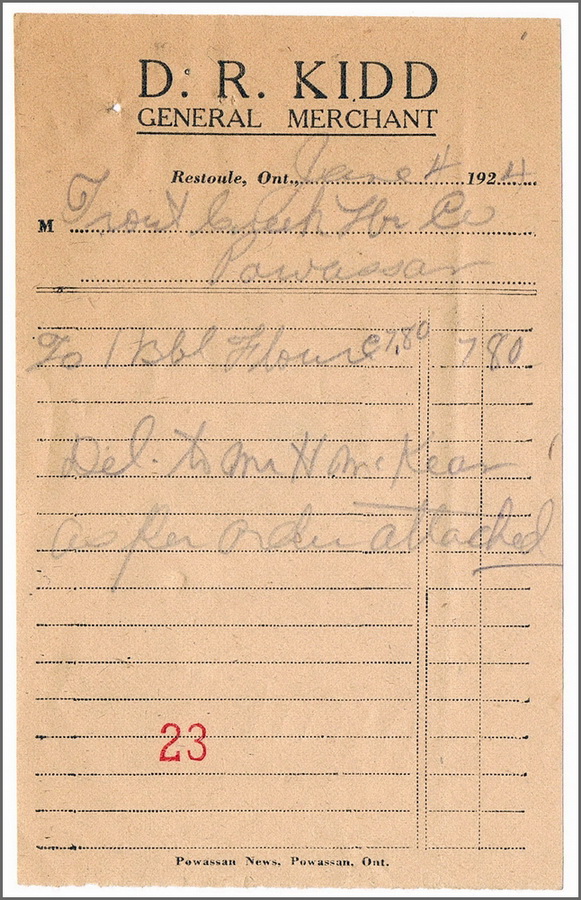 D. R. KIDD
GENERAL MERCHANT
Restoule, Ont., June 4 1924
M Trout Creek Lbr Co
Powassan
To 1 Bbl Flour @ 7.80 7 80
Del. to Mr H McKean
as per order attached
23
Powassan News, Powassan, Ont.